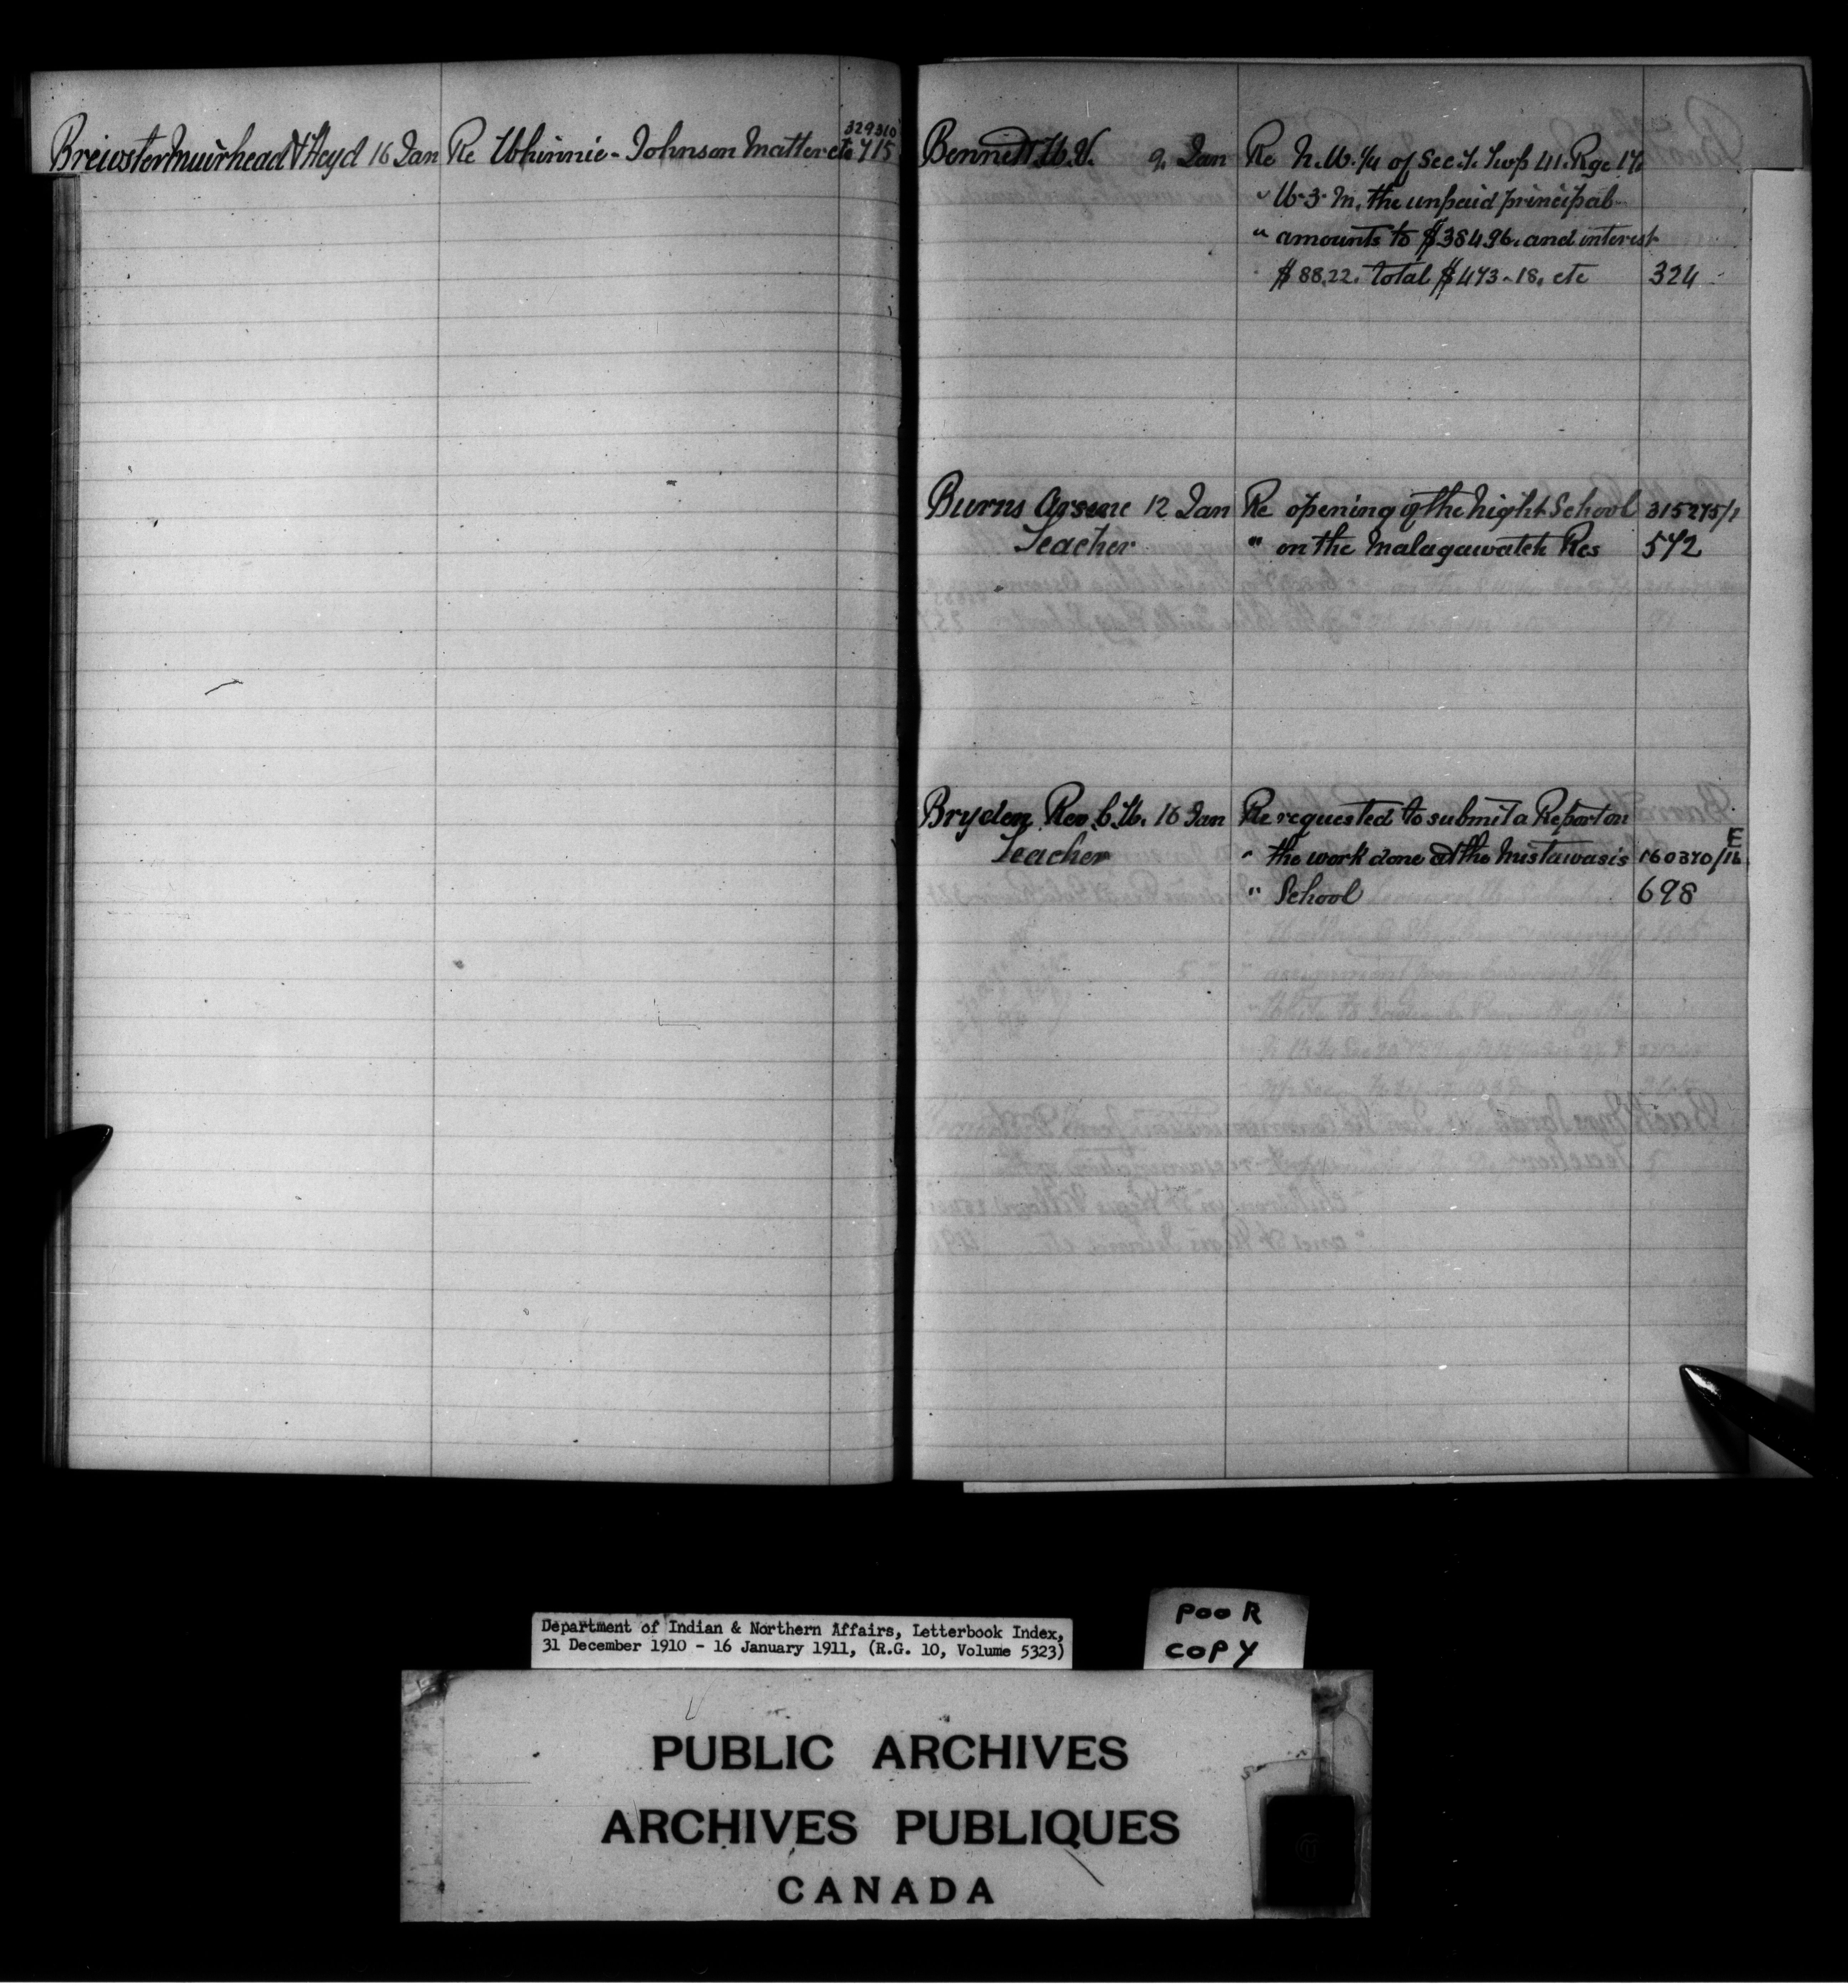 329310
Brewster Muirhead & Heyd 16 Jan Re Whinnie - Johnson Matter etc 715
Bennett W.V. 9. Jan Re N.W. 1/4 of Sec. 7. Twp 41. Rge 17.
" W. 3. M. the unpaid principal
" amounts to $384.96. and interest
" $88.22. total $473-18. etc 324
Burns Arsene 12 Jan Re opening of the night School 315275/1
Teacher " on the Malagawatch Res 542
Bryden Rev. C.W. 16 Jan Re requested to submit a Report on
Teacher " the work done at the Mistawasis 160370/16 E
" School 698
Department of Indian & Northern Affairs, Letterbook Index,
31 December 1910 - 16 January 1911, (R.G. 10, Volume 5323)
POOR
COPY
PUBLIC ARCHIVES
ARCHIVES PUBLIQUES
CANADA